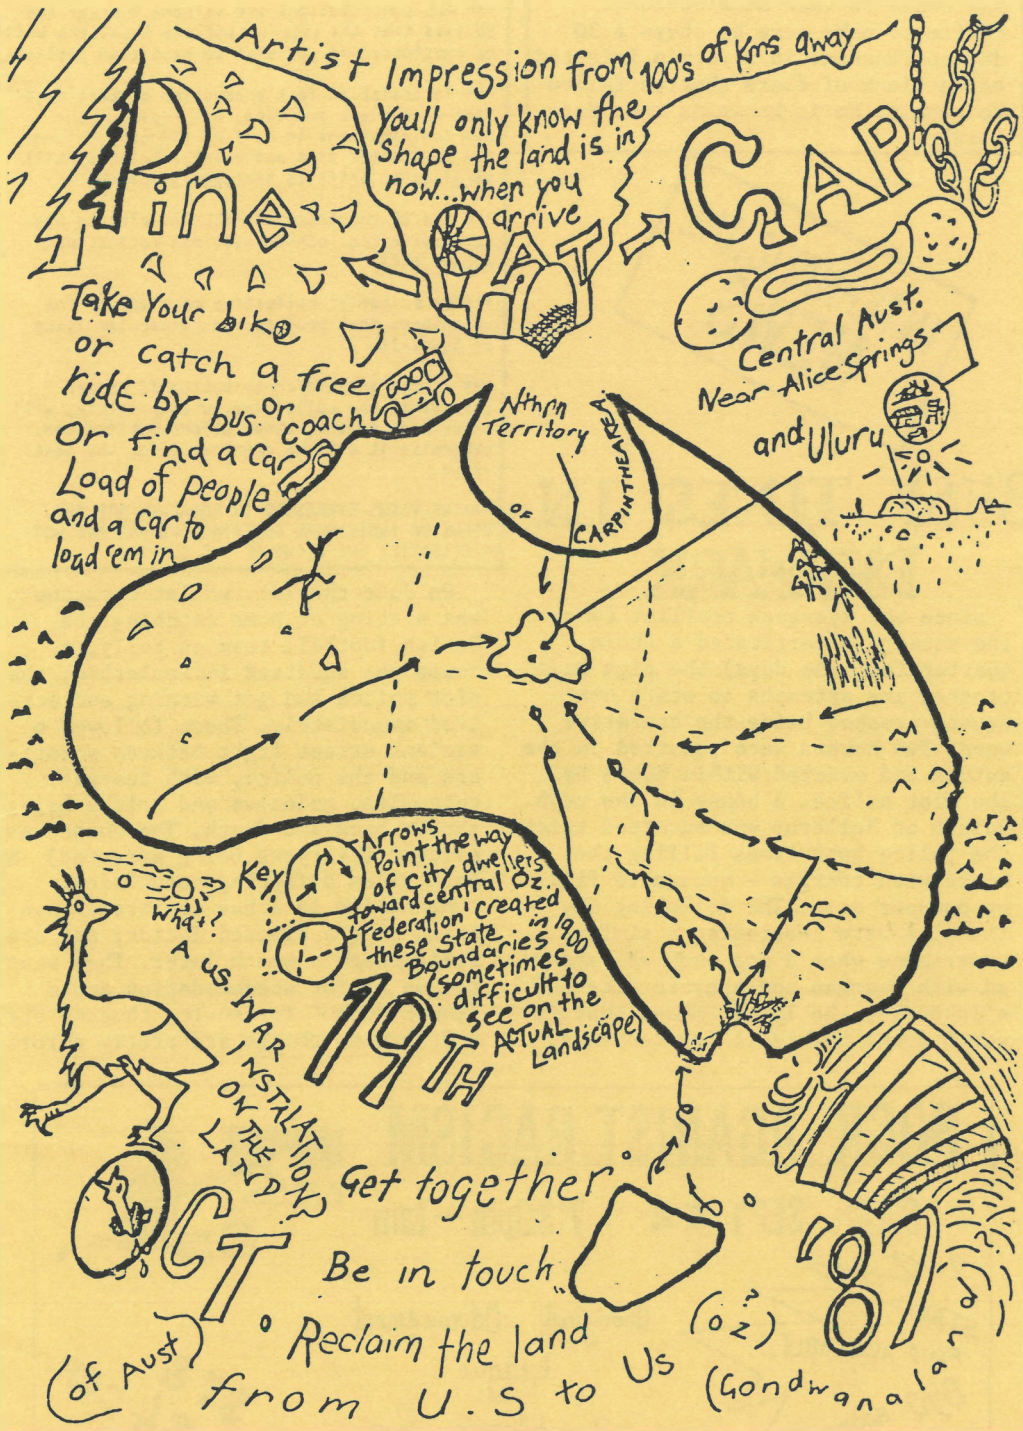 Artist Impression from 100's of Kms away
Youll only know the
shape the land is in
now...when you
arrive
Pine
AT
GAP
Take Your bike
or catch a free
ride by bus or
coach
Or find a car
Load of people
and a car to
load 'em in
Central Aust.
Near Alice Springs
and Uluru
Nthrn
Territory
OF CARPINTHEAREA
Key
Arrows
Point the way
of City dwellers
toward central Oz.
'Federation' Created
these State in 1900
Boundaries
(sometimes
difficult to
see on the
ACTUAL
Landscape)
What?
A US. WAR
INSTALATION?
ON THE
LAND
19TH
OCT
'87
Get together
Be in touch..
Reclaim the land
(of Aust)
from U.S to Us
(oz?)
(Gondwanaland)